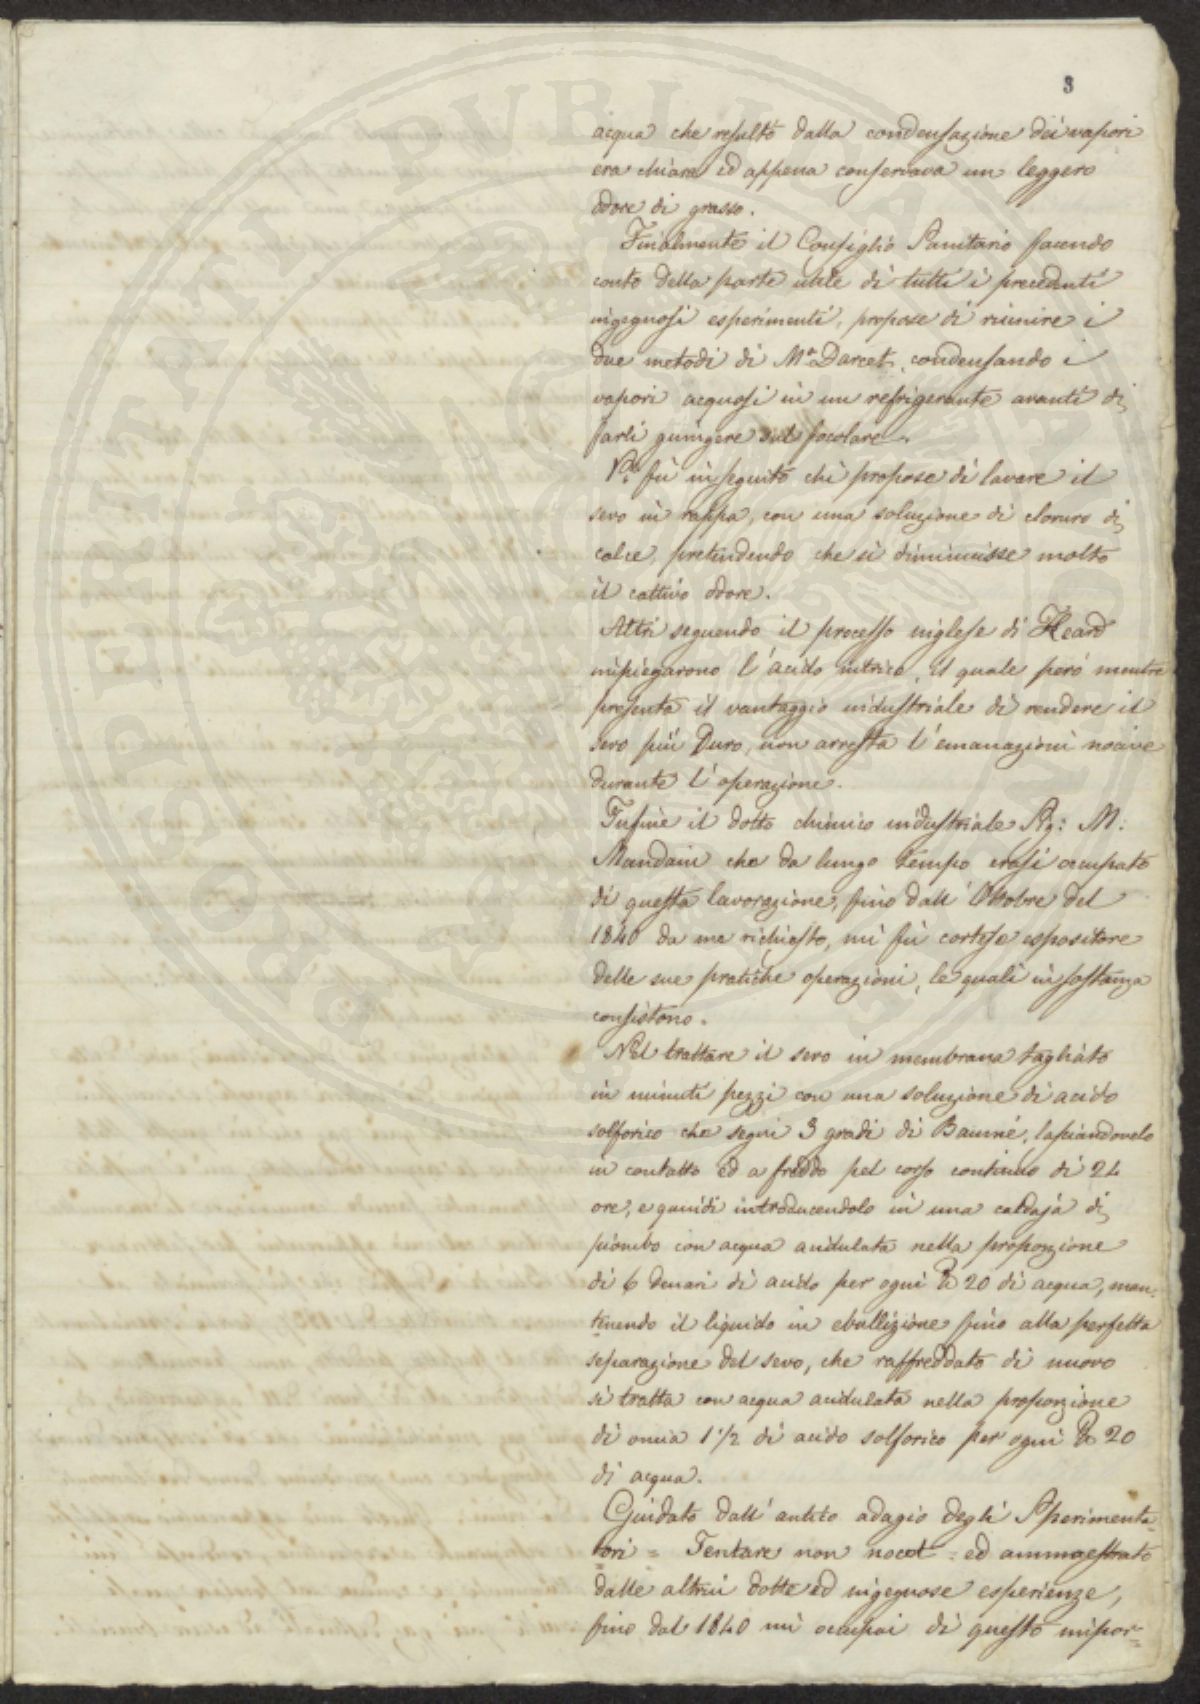 3
acqua che resultò dalla condensazione dei vapori
era chiara ed appena conservava un leggero
odore di grasso.
Finalmente il Consiglio Sanitario facendo
conto della parte utile di tutti i precedenti
ingegnosi esperimenti, propose di riunire i
due metodi di Mr. Darcet, condensando i
vapori acquosi in un refrigerante avanti di
farli giungere sul focolare.
Vi fù in seguito chi propose di lavare il
sevo in rappa, con una soluzione di cloruro di
calce, pretendendo che si diminuisse molto
il cattivo odore.
Altri seguendo il processo inglese di Heard
impiegarono l'acido nitrico, il quale però mentre
presenta il vantaggio industriale di rendere il
sevo più duro, non arresta l'emanazioni nocive
durante l'operazione.
Infine il dotto chimico industriale Sig: M:
che da lungo tempo erasi occupato
di questa lavorazione, fino dall'Ottobre del
1840 da me richiesto, mi fù cortese espositore
delle sue pratiche operazioni, le quali in sostanza
consistono.
Nel trattare il sevo in membrana tagliato
in minuti pezzi con una soluzione di acido
solforico che segni 3 gradi di Baumé, lasciandovelo
in contatto ed a freddo pel corso continuo di 24
ore, e quindi introducendolo in una caldaja di
piombo con acqua acidulata nella proporzione
di 6 denari di acido per ogni ℔ 20 di acqua, man-
tenendo il liquido in ebullizione fino alla perfetta
separazione del sevo, che raffreddato di nuovo
si tratta con acqua acidulata nella proporzione
di oncia 1 1/2 di acido solforico per ogni ℔ 20
di acqua.
Guidato dall'antico adagio degli Sperimenta=
tori = Tentare non nocet = ed ammaestrato
dalle altrui dotte ed ingegnose esperienze,
fino dal 1840 mi occupai di questo impor=
PUBLICI